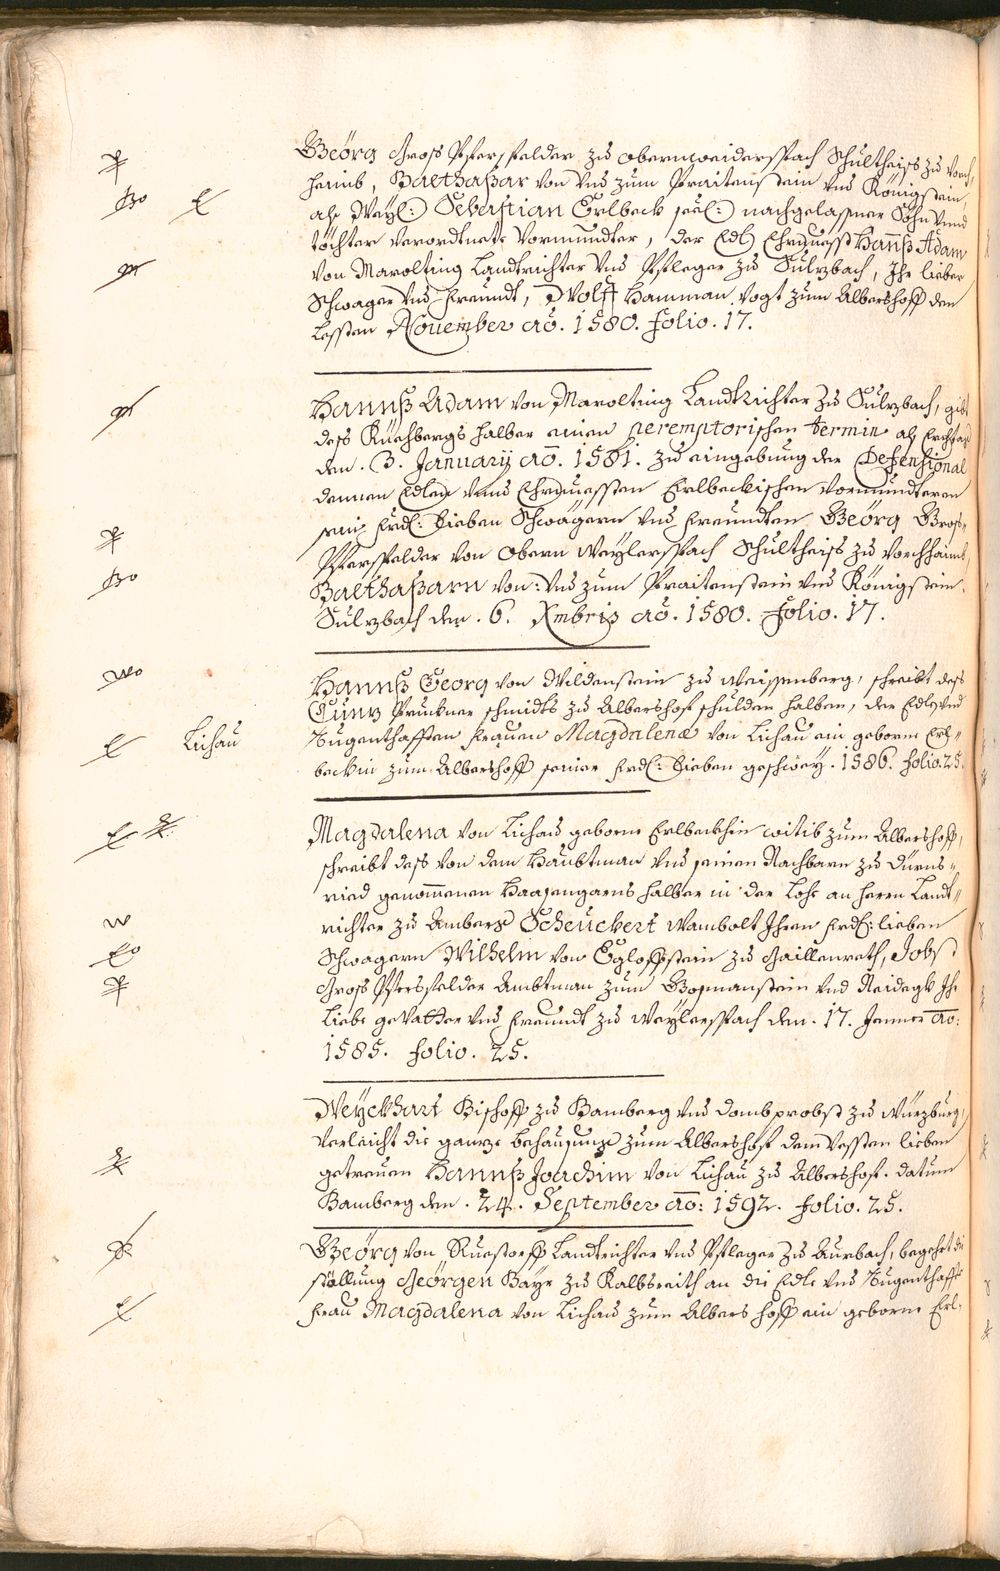 Geörg Gross Pfersfelder zu Obernweidersspach Schultheiss zu Vorch,
haimb, Balthaßar von vnd zum Praitenstein vnd Königstein,
alß Weyl: Sebastian Erlbeck seel: nachgelaßner Söhn vnnd
töchter verordtnete Vormundter, der Edl Ehrnuesst Hannß Adam
Von Marolting Landtrichter vnd Pfleger zu Sulzbach, Ihr lieber
Schwager vnd Freundt, Wolff Hamman Vogt zum Albershoff den
lessten Nouember aõ. 1580. folio. 17.
Hannß Adam von Marolting Landtrichter zu Sulzbach, gibt
dess Küehbergs halber einen peremptorischen termin alß Erchtag
den. 3. January aõ. 1581. zu eingebung der Defensional
dennen Edlen vnnd Ehrnuessten Erlbeckischen Vormundteren
sein frdl: lieben Schwägern vnd Freundten Geörg Gross-
Pfersfelder von Obern Weylersspach Schultheiss zu Vorchhaimb,
Balthaßarn von: vnd zum Praitenstein vnd Königstein.
Sulzbach den. 6. Xmbris aõ. 1580. Folio. 17.
Hannß Georg von Wildenstein zu Weissenberg, schreibt dess
Cunz Pruckner schmidts zu Albershof schulden halben, der Edlen vnd
Tugenthafften frauen Magdalena von Lichau ein geborne Erl-
beckin zum Albershoff seiner frdl: lieben geschwey. 1586. folio. 25.
Lichau
Magdalena von Lichau geborne Erlbeckhin witib zum Albershoff,
schreibt dess von dem Haubtman vnd seinen Nachbarn zu Dürns-
ried genommenen Haasengarns halber in der Lohe an herrn Landt-
richter zu Amberg Scheuckert Wambolt Ihren frdl: lieben
Schwagern Wilhelm von Egloffstein zu Gaillenreth, Jobst
Gross Pfersfelder Ambtman zum Gosmanstein vnd Neidegk Ihr
liebe geVatter vnd Freundt zu Weylersspach den. 17. Jenner aõ:
1585. folio. 25.
Weyckhart Bischoff zu Bamberg vnd dombprobst zu Würzburg,
Verleicht die gannze behausung zum Albershoff dem Vessten lieben
getreuen Hannß Joachim von Lichau zu Albershof. datum
Bamberg den. 24. September aõ: 1592. folio. 25.
Geörg von Ruestorff Landtrichter vnd Pfleger zu Aurbach, begehrt die
stöllung Geörgen Bayr zu Kalbsreith an die Edle vnd Tugenthaffte
frau Magdalena von Lichau zum Albers hoff ein geborne Erl-